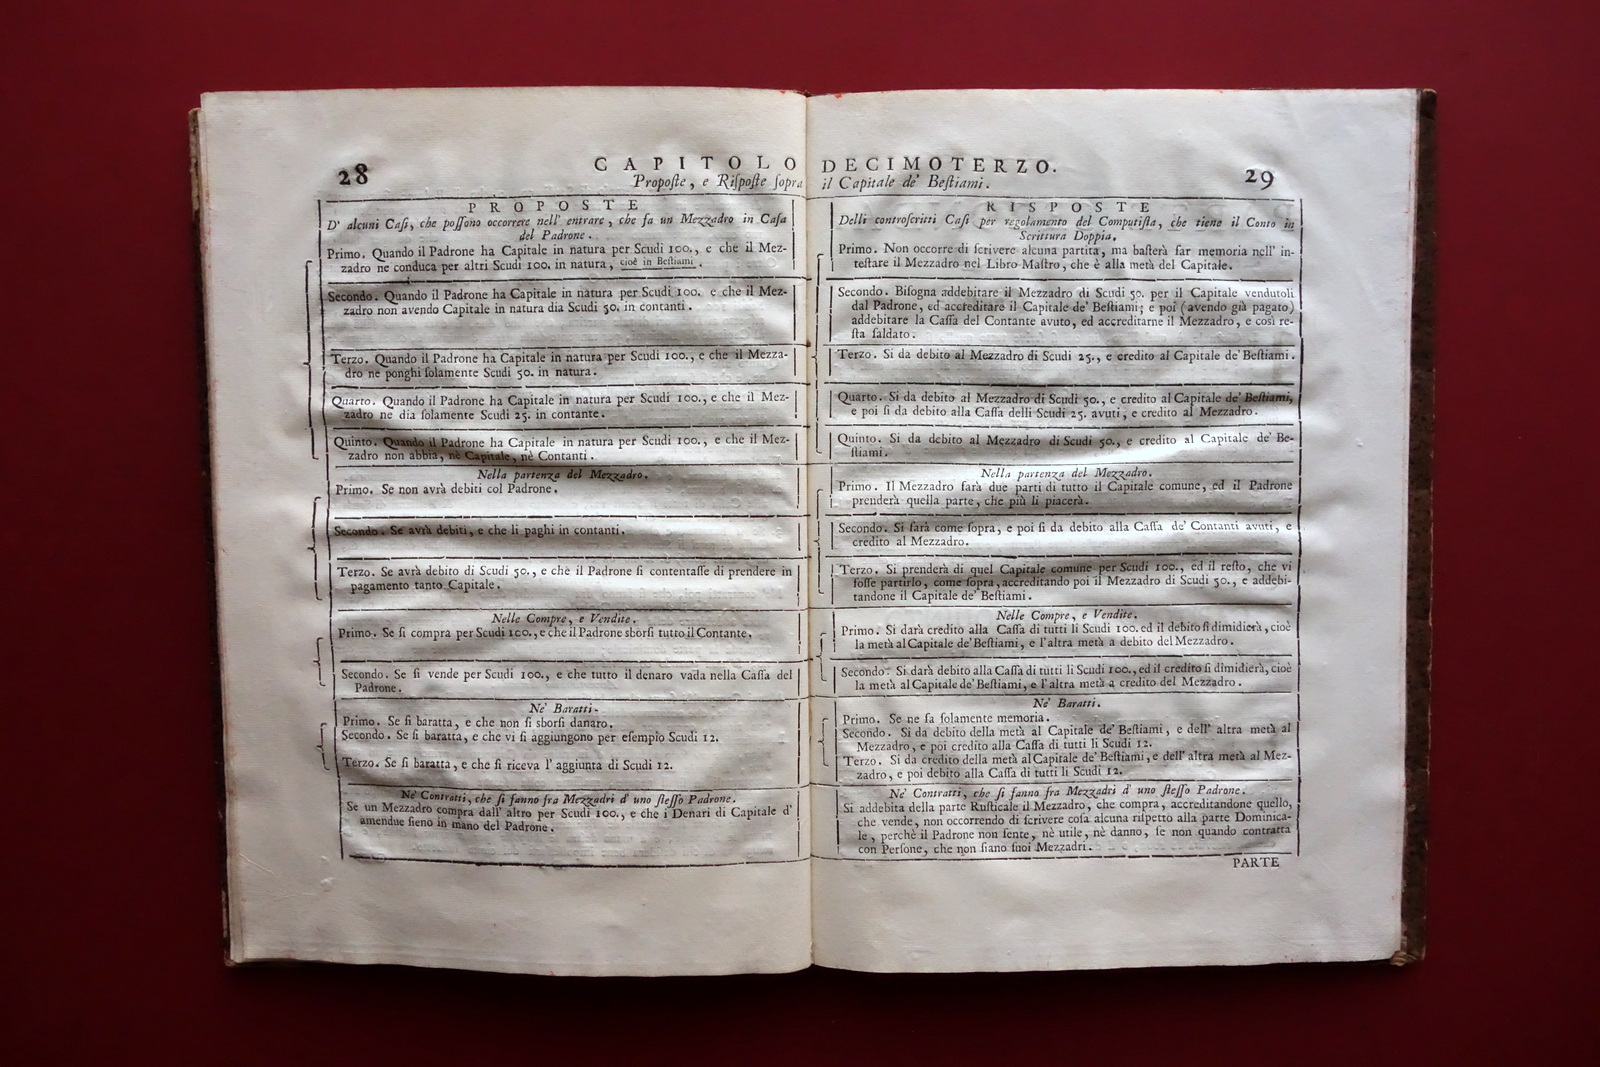 28
CAPITOLO
Propoſte, e Riſpoſte ſopra
PROPOSTE
D' alcuni Caſi, che poſſono occorrere nell' entrare, che fa un Mezzadro in Caſa
del Padrone.
Primo. Quando il Padrone ha Capitale in natura per Scudi 100., e che il Mez-
zadro ne conduca per altri Scudi 100. in natura, cioè in Beſtiami.
Secondo. Quando il Padrone ha Capitale in natura per Scudi 100. e che il Mez-
zadro non avendo Capitale in natura dia Scudi 50. in contanti.
Terzo. Quando il Padrone ha Capitale in natura per Scudi 100., e che il Mezza-
dro ne ponghi ſolamente Scudi 50. in natura.
Quarto. Quando il Padrone ha Capitale in natura per Scudi 100., e che il Mez-
zadro ne dia ſolamente Scudi 25. in contante.
Quinto. Quando il Padrone ha Capitale in natura per Scudi 100., e che il Mez-
zadro non abbia, nè Capitale, nè Contanti.
Nella partenza del Mezzadro.
Primo. Se non avrà debiti col Padrone.
Secondo. Se avrà debiti, e che li paghi in contanti.
Terzo. Se avrà debito di Scudi 50., e che il Padrone ſi contentaſſe di prendere in
pagamento tanto Capitale.
Nelle Compre, e Vendite.
Primo. Se ſi compra per Scudi 100., e che il Padrone sborſi tutto il Contante.
Secondo. Se ſi vende per Scudi 100., e che tutto il denaro vada nella Caſſa del
Padrone.
Ne' Baratti.
Primo. Se ſi baratta, e che non ſi sborſi danaro.
Secondo. Se ſi baratta, e che vi ſi aggiungono per eſempio Scudi 12.
Terzo. Se ſi baratta, e che ſi riceva l' aggiunta di Scudi 12.
Ne' Contratti, che ſi fanno fra Mezzadri d' uno ſteſſo Padrone.
Se un Mezzadro compra dall' altro per Scudi 100., e che i Denari di Capitale d'
amendue ſieno in mano del Padrone.
DECIMOTERZO.
29
il Capitale de' Beſtiami.
RISPOSTE
Delli controſcritti Caſi per regolamento del Computiſta, che tiene il Conto in
Scrittura Doppia.
Primo. Non occorre di ſcrivere alcuna partita, ma baſterà far memoria nell' in-
teſtare il Mezzadro nel Libro Maſtro, che è alla metà del Capitale.
Secondo. Biſogna addebitare il Mezzadro di Scudi 50. per il Capitale vendutoli
dal Padrone, ed accreditare il Capitale de' Beſtiami; e poi (avendo già pagato)
addebitare la Caſſa del Contante avuto, ed accreditarne il Mezzadro, e così re-
ſta ſaldato.
Terzo. Si da debito al Mezzadro di Scudi 25., e credito al Capitale de' Beſtiami.
Quarto. Si da debito al Mezzadro di Scudi 50., e credito al Capitale de' Beſtiami,
e poi ſi da debito alla Caſſa delli Scudi 25. avuti, e credito al Mezzadro.
Quinto. Si da debito al Mezzadro di Scudi 50., e credito al Capitale de' Be-
ſtiami.
Nella partenza del Mezzadro.
Primo. Il Mezzadro farà due parti di tutto il Capitale comune, ed il Padrone
prenderà quella parte, che più li piacerà.
Secondo. Si farà come ſopra, e poi ſi da debito alla Caſſa de' Contanti avuti, e
credito al Mezzadro.
Terzo. Si prenderà di quel Capitale comune per Scudi 100., ed il reſto, che vi
foſſe partirlo, come ſopra, accreditando poi il Mezzadro di Scudi 50., e addebi-
tandone il Capitale de' Beſtiami.
Nelle Compre, e Vendite.
Primo. Si darà credito alla Caſſa di tutti li Scudi 100. ed il debito ſi dimidierà, cioè
la metà al Capitale de' Beſtiami, e l'altra metà a debito del Mezzadro.
Secondo. Si darà debito alla Caſſa di tutti li Scudi 100., ed il credito ſi dimidierà, cioè
la metà al Capitale de' Beſtiami, e l'altra metà a credito del Mezzadro.
Ne' Baratti.
Primo. Se ne fa ſolamente memoria.
Secondo. Si da debito della metà al Capitale de' Beſtiami, e dell' altra metà al
Mezzadro, e poi credito alla Caſſa di tutti li Scudi 12.
Terzo. Si da credito della metà al Capitale de' Beſtiami, e dell' altra metà al Mez-
zadro, e poi debito alla Caſſa di tutti li Scudi 12.
Ne' Contratti, che ſi fanno fra Mezzadri d' uno ſteſſo Padrone.
Si addebita della parte Ruſticale il Mezzadro, che compra, accreditandone quello,
che vende, non occorrendo di ſcrivere coſa alcuna riſpetto alla parte Dominica-
le, perchè il Padrone non ſente, nè utile, nè danno, ſe non quando contratta
con Perſone, che non ſiano ſuoi Mezzadri.
PARTE